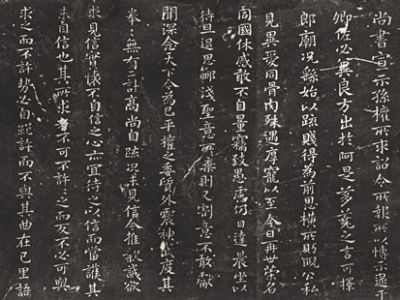 尚書宣示孫權所求詔令所報所以博示逮于
卿佐必冀良方出於阿是芻蕘之言可擇
郎廟況繇始以疏賤得為前恩橫所盼睨公私
見異愛同骨肉殊遇厚寵以至今日再世榮名
同國休慼敢不自量竊致愚慮仍日達晨坐以
待旦退思鄙淺聖意所棄則又割意不敢獻
聞深念天下今為已平權之委質外震神武度其
拳拳無有二計高尚自疏況未見信今推款誠欲
求見信實懷不自信之心亦宜待之以信而當護其
未自信也其所求者不可不許許之而反不必可與
求之而不許勢必自絕許而不與其曲在己里語